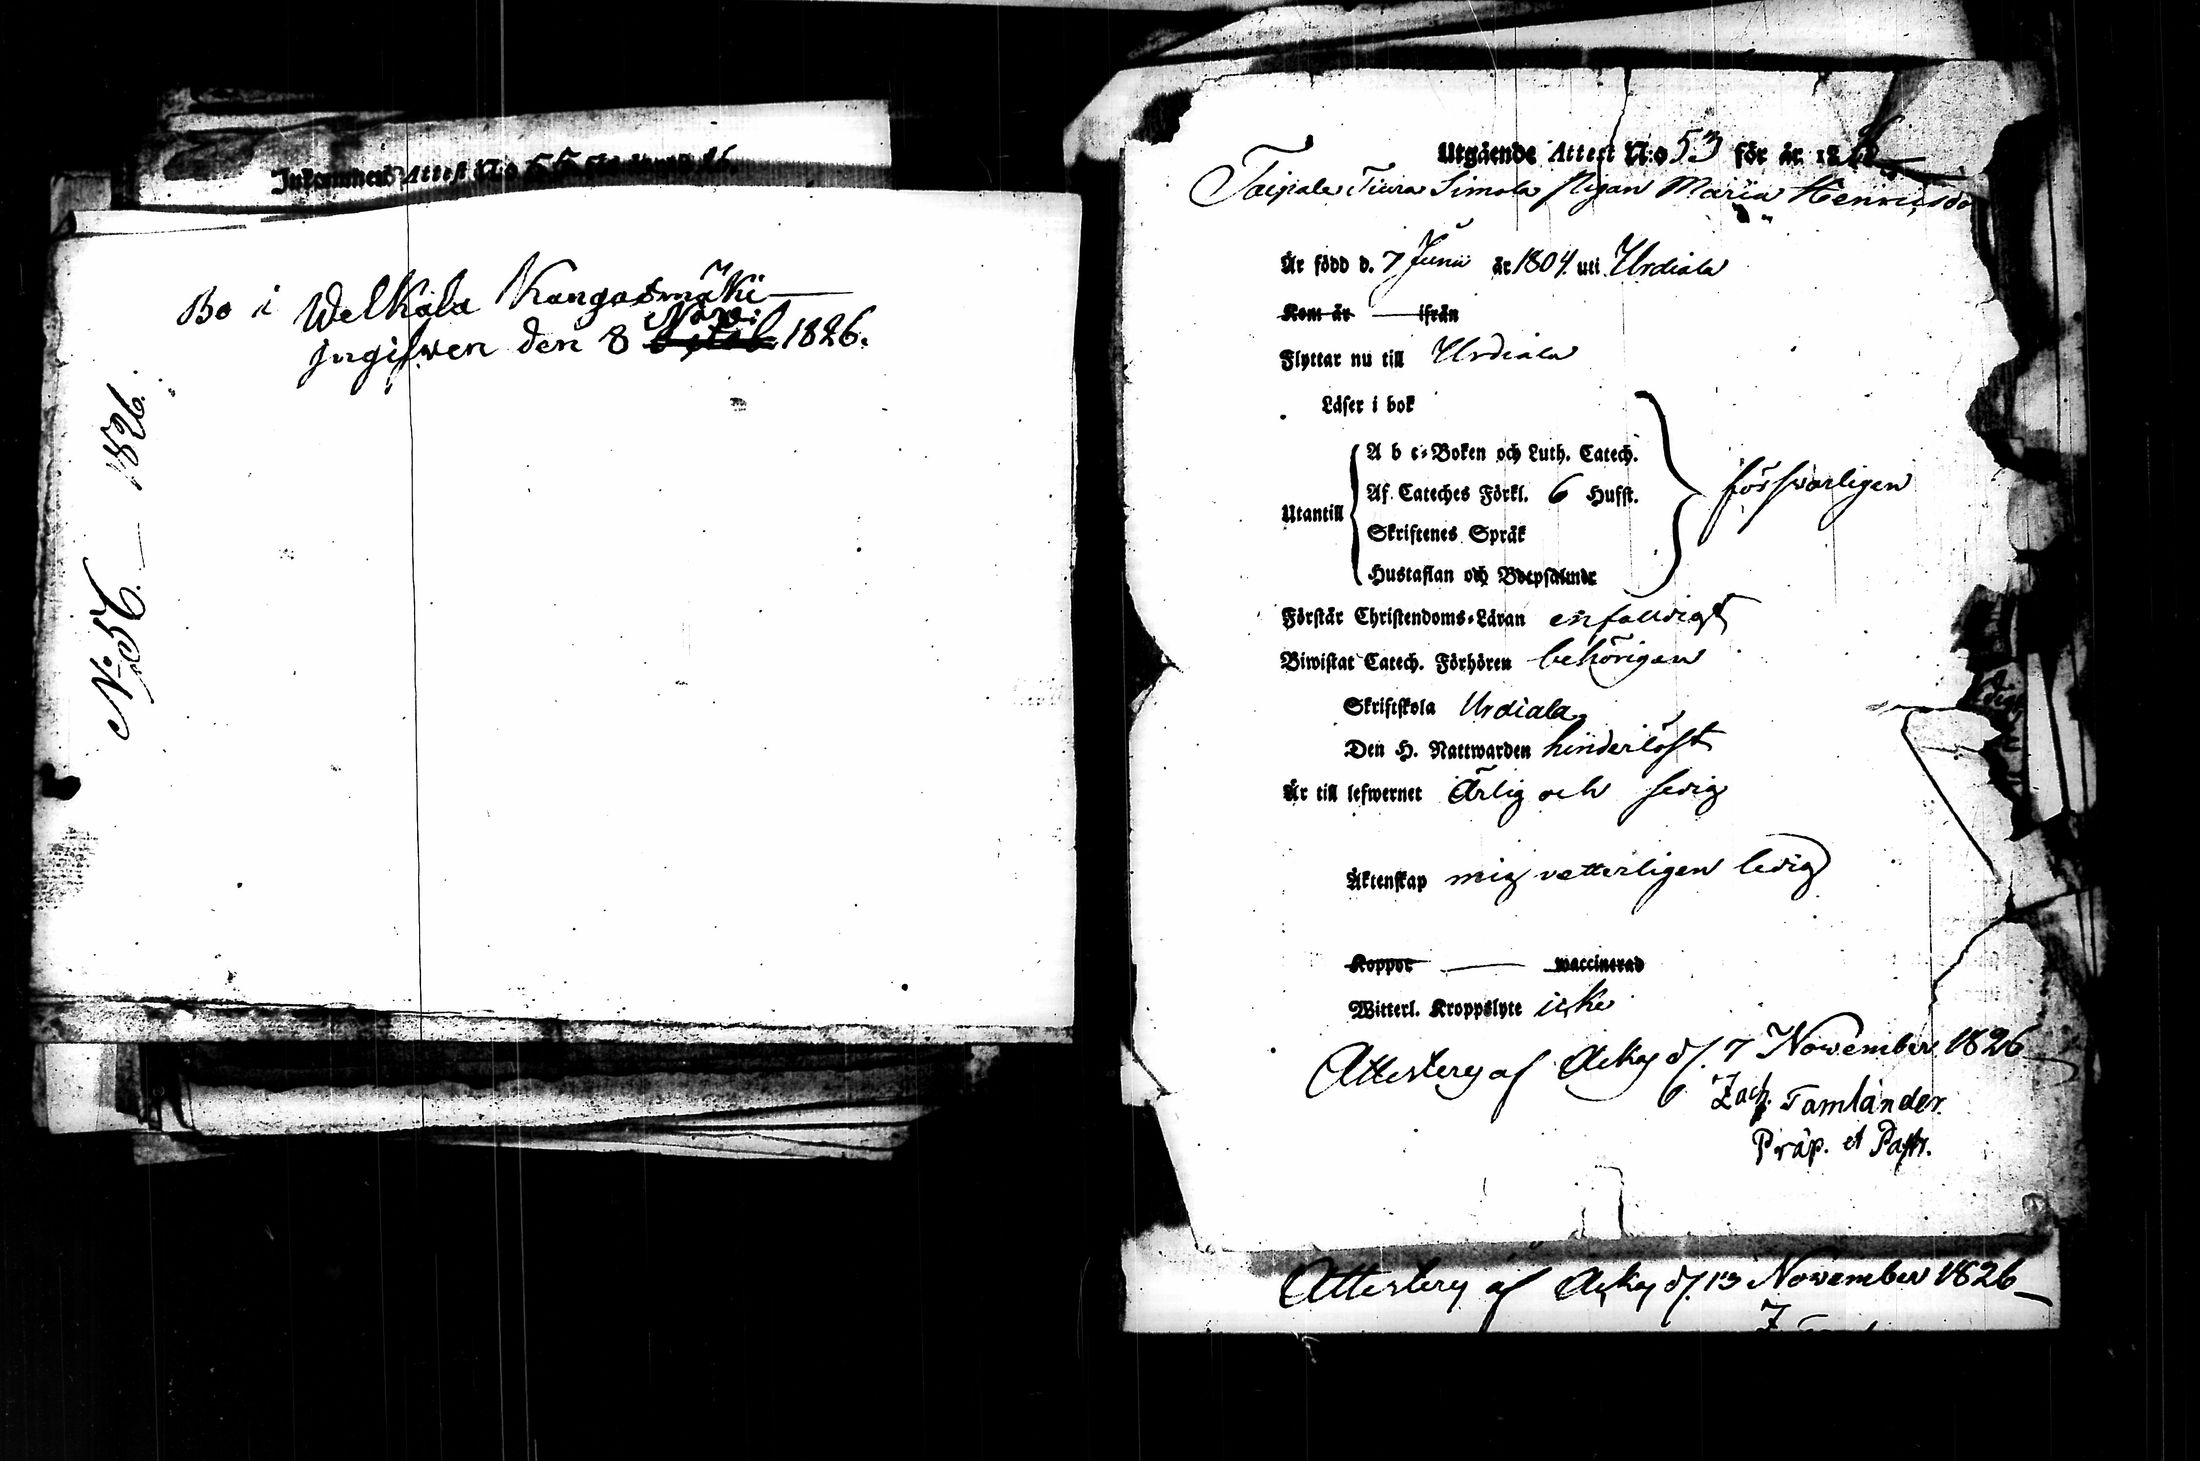 Inkommend Attest N:o 55
Bo i Welkala Kangasmäki
jngifwen den 8 Nov: 1826.
N:o 56. — 1826.
Utgående Attest N:o 53 för år 18
Taipale Tiura Simola pigan Maria Henricsdo
Är född d. 7 Junii år 1804. uti Urdiala
Kom år — ifrån
Flyttar nu till Urdiala
Läser i bok
Utantill
A b c-Boken och Luth. Catech.
Af Cateches Förkl. 6 Hufst.
Skriftenes Språk
Hustaflan och Botpsalmer
försvarligen
Förstår Christendoms-Läran enfalldigt
Biwistat Catech. Förhören behörigen
Skriftskola Urdiala
Den H. Nattwarden hinderlöst
Är till lefwernet Ärlig och sedig
Äktenskap mig vetterligen ledig
Koppor — waccinerad
Witterl. Kroppslyte icke
Attesterg af Ackas d/. 7 November 1826
Zach. Tamlander
Präp. et Past.
Attesterg af Ackas d/. 13 November 1826